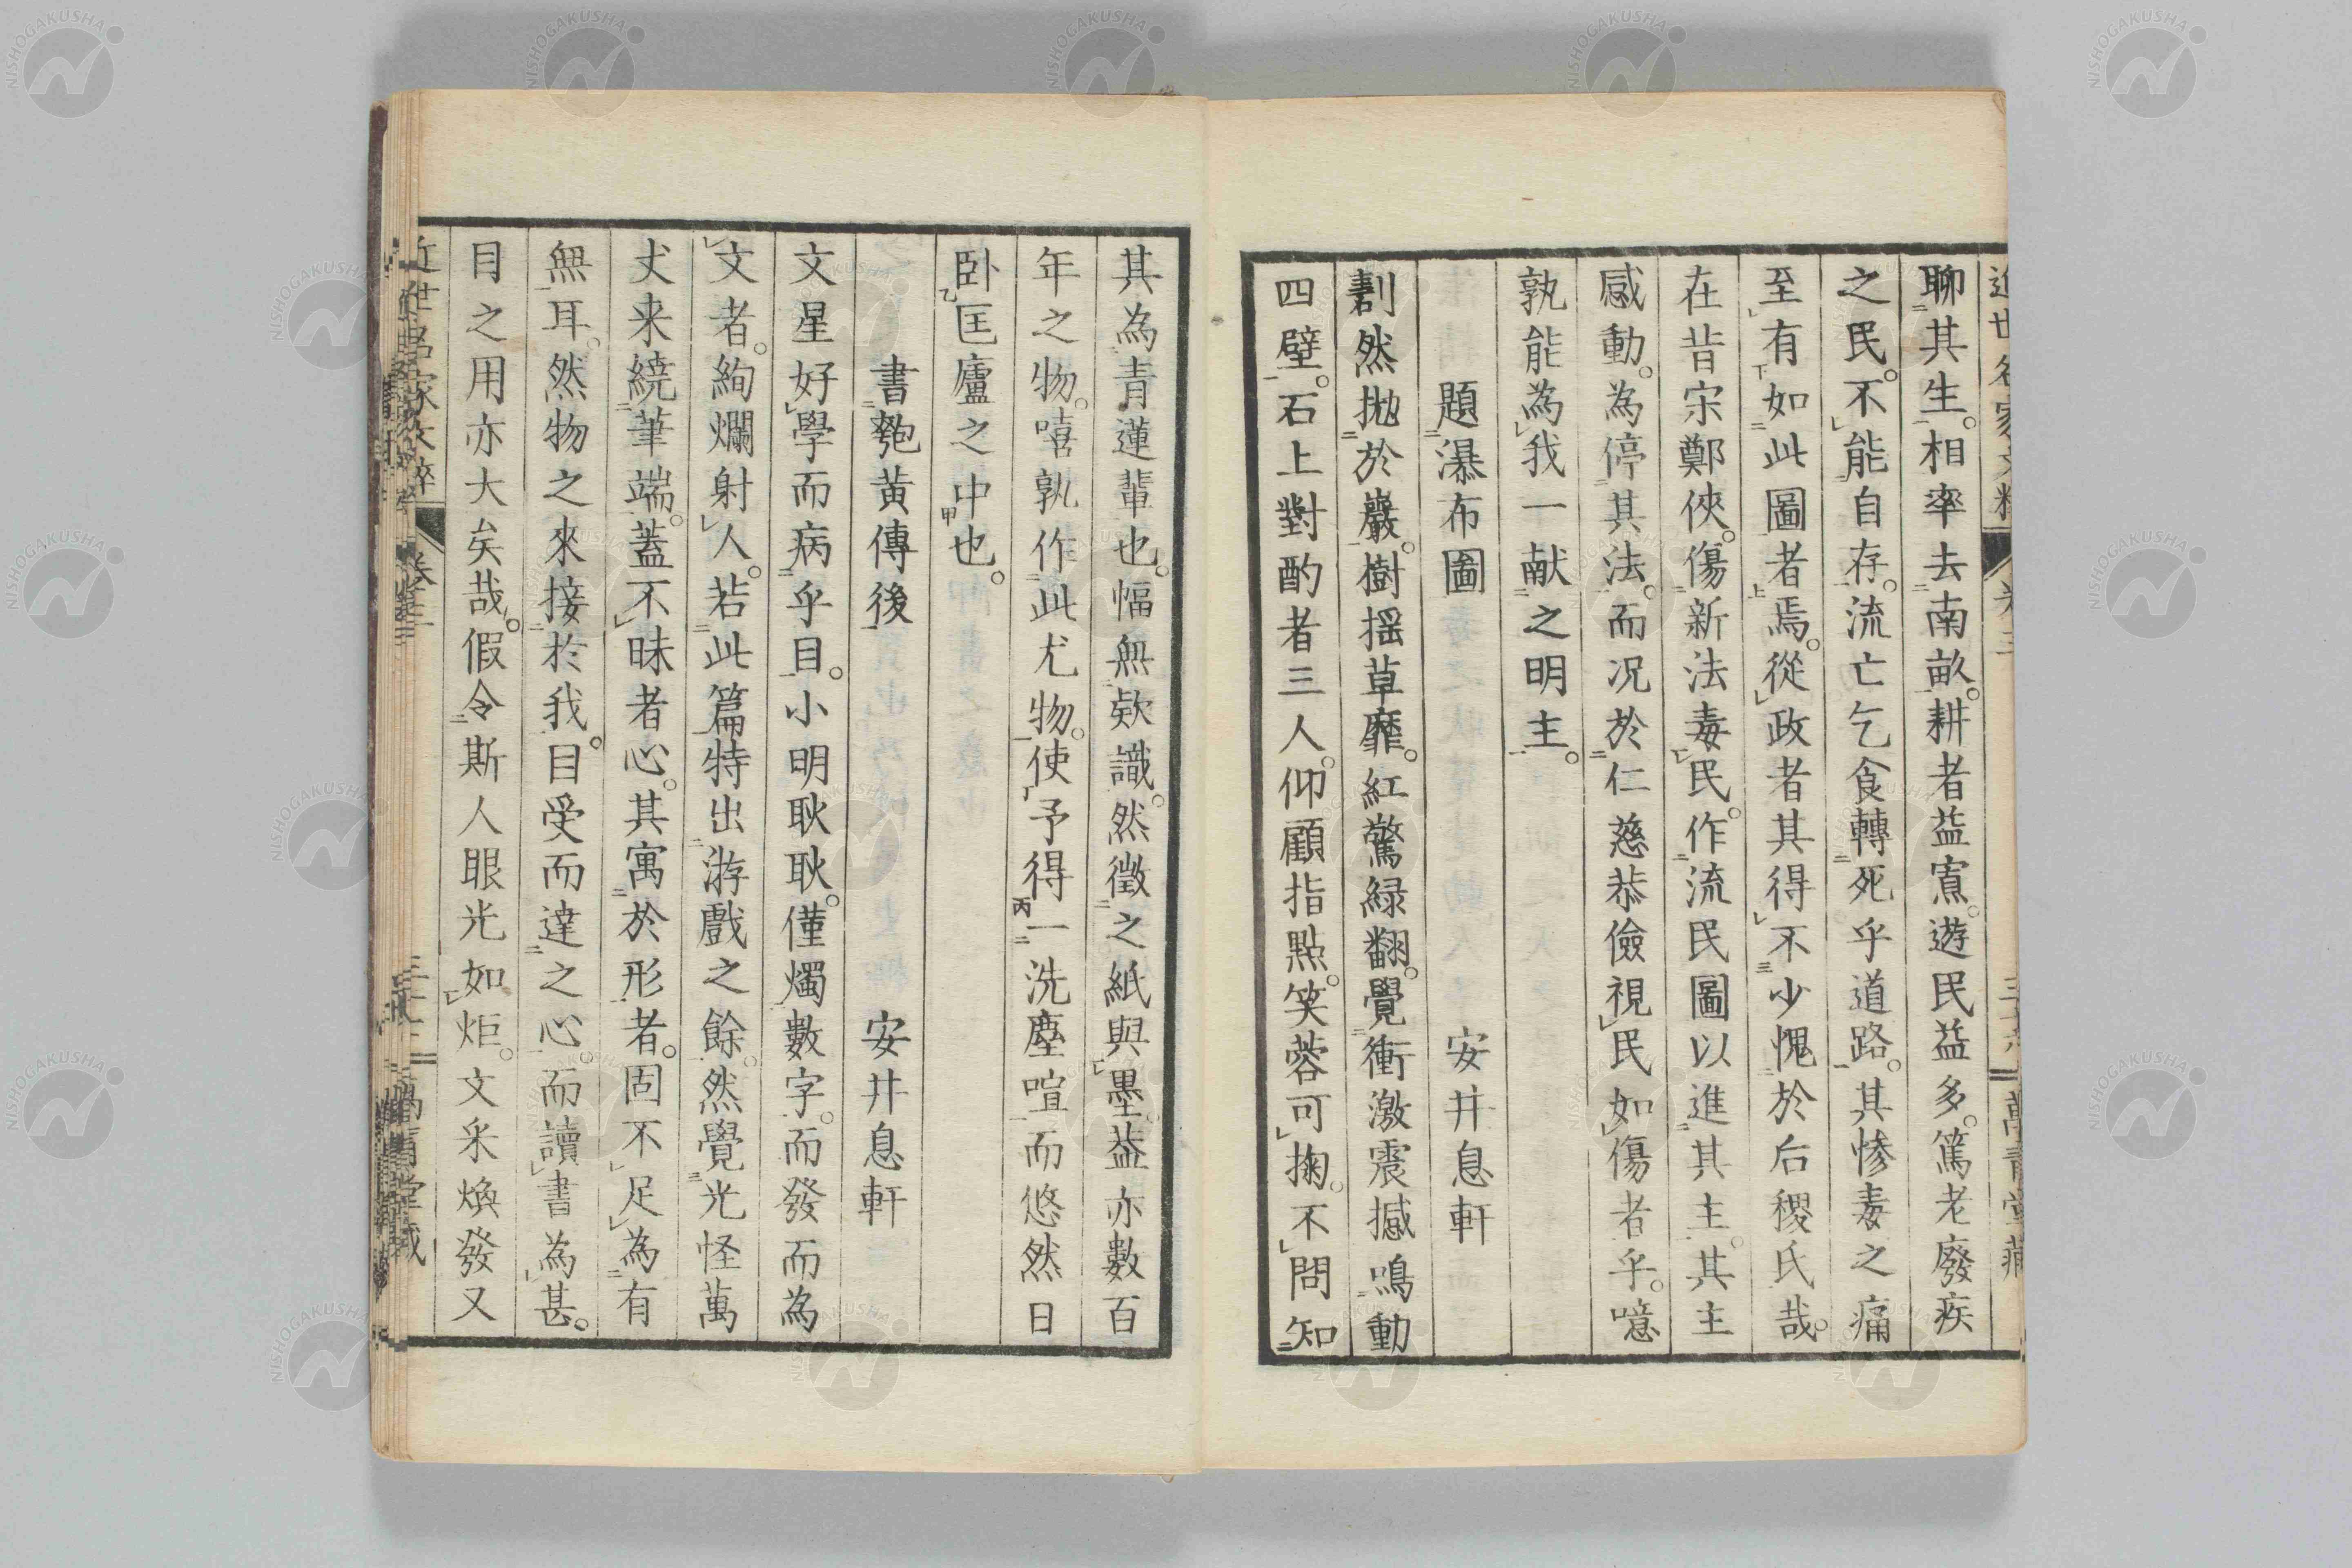 聊其生。相率去南畝。耕者益寡。遊民益多。篤老廢疾
之民。不能自存。流亡乞食轉死乎道路。其惨毒之痛
至有如此圖者焉。從政者其得不少愧於后稷氏哉。
在昔宋鄭俠。傷新法毒民。作流民圖以進其主。其主
感動。為停其法。而况於仁慈恭儉視民如傷者乎。噫
孰能為我一献之明主。
題瀑布圖 安井息軒
劃然拋於巖。樹揺草靡。紅驚緑翻。覺衝激震撼鳴動
四壁。石上對酌者三人。仰顧指點。笑蓉可掬。不問知
其為青蓮輩也。幅無欵識。然徵之紙與墨。益亦數百
年之物。嘻孰作此尤物。使予得一洗塵喧而悠然日
卧匡廬之中也。
書匏黄傳後 安井息軒
文星好學而病乎目。小明耿耿。僅燭數字。而發而為
文者。絢爛射人。若此篇特出游戲之餘。然覺光怪萬
丈来繞筆端。蓋不昧者心。其寓於形者。固不足為有
無耳。然物之來接於我。目受而達之心。而讀書為甚。
目之用亦大矣哉。假令斯人眼光如炬。文采煥發又
近世名家文粹 卷三 萬青堂藏
NISHOGAKUSHA